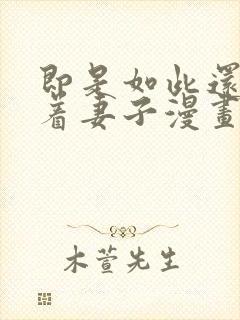 即是如此還
著妻子漫畫
木萱先生